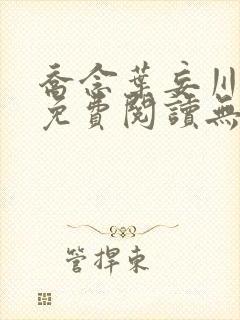 喬念葉妄川
免費閱讀無
管捍東